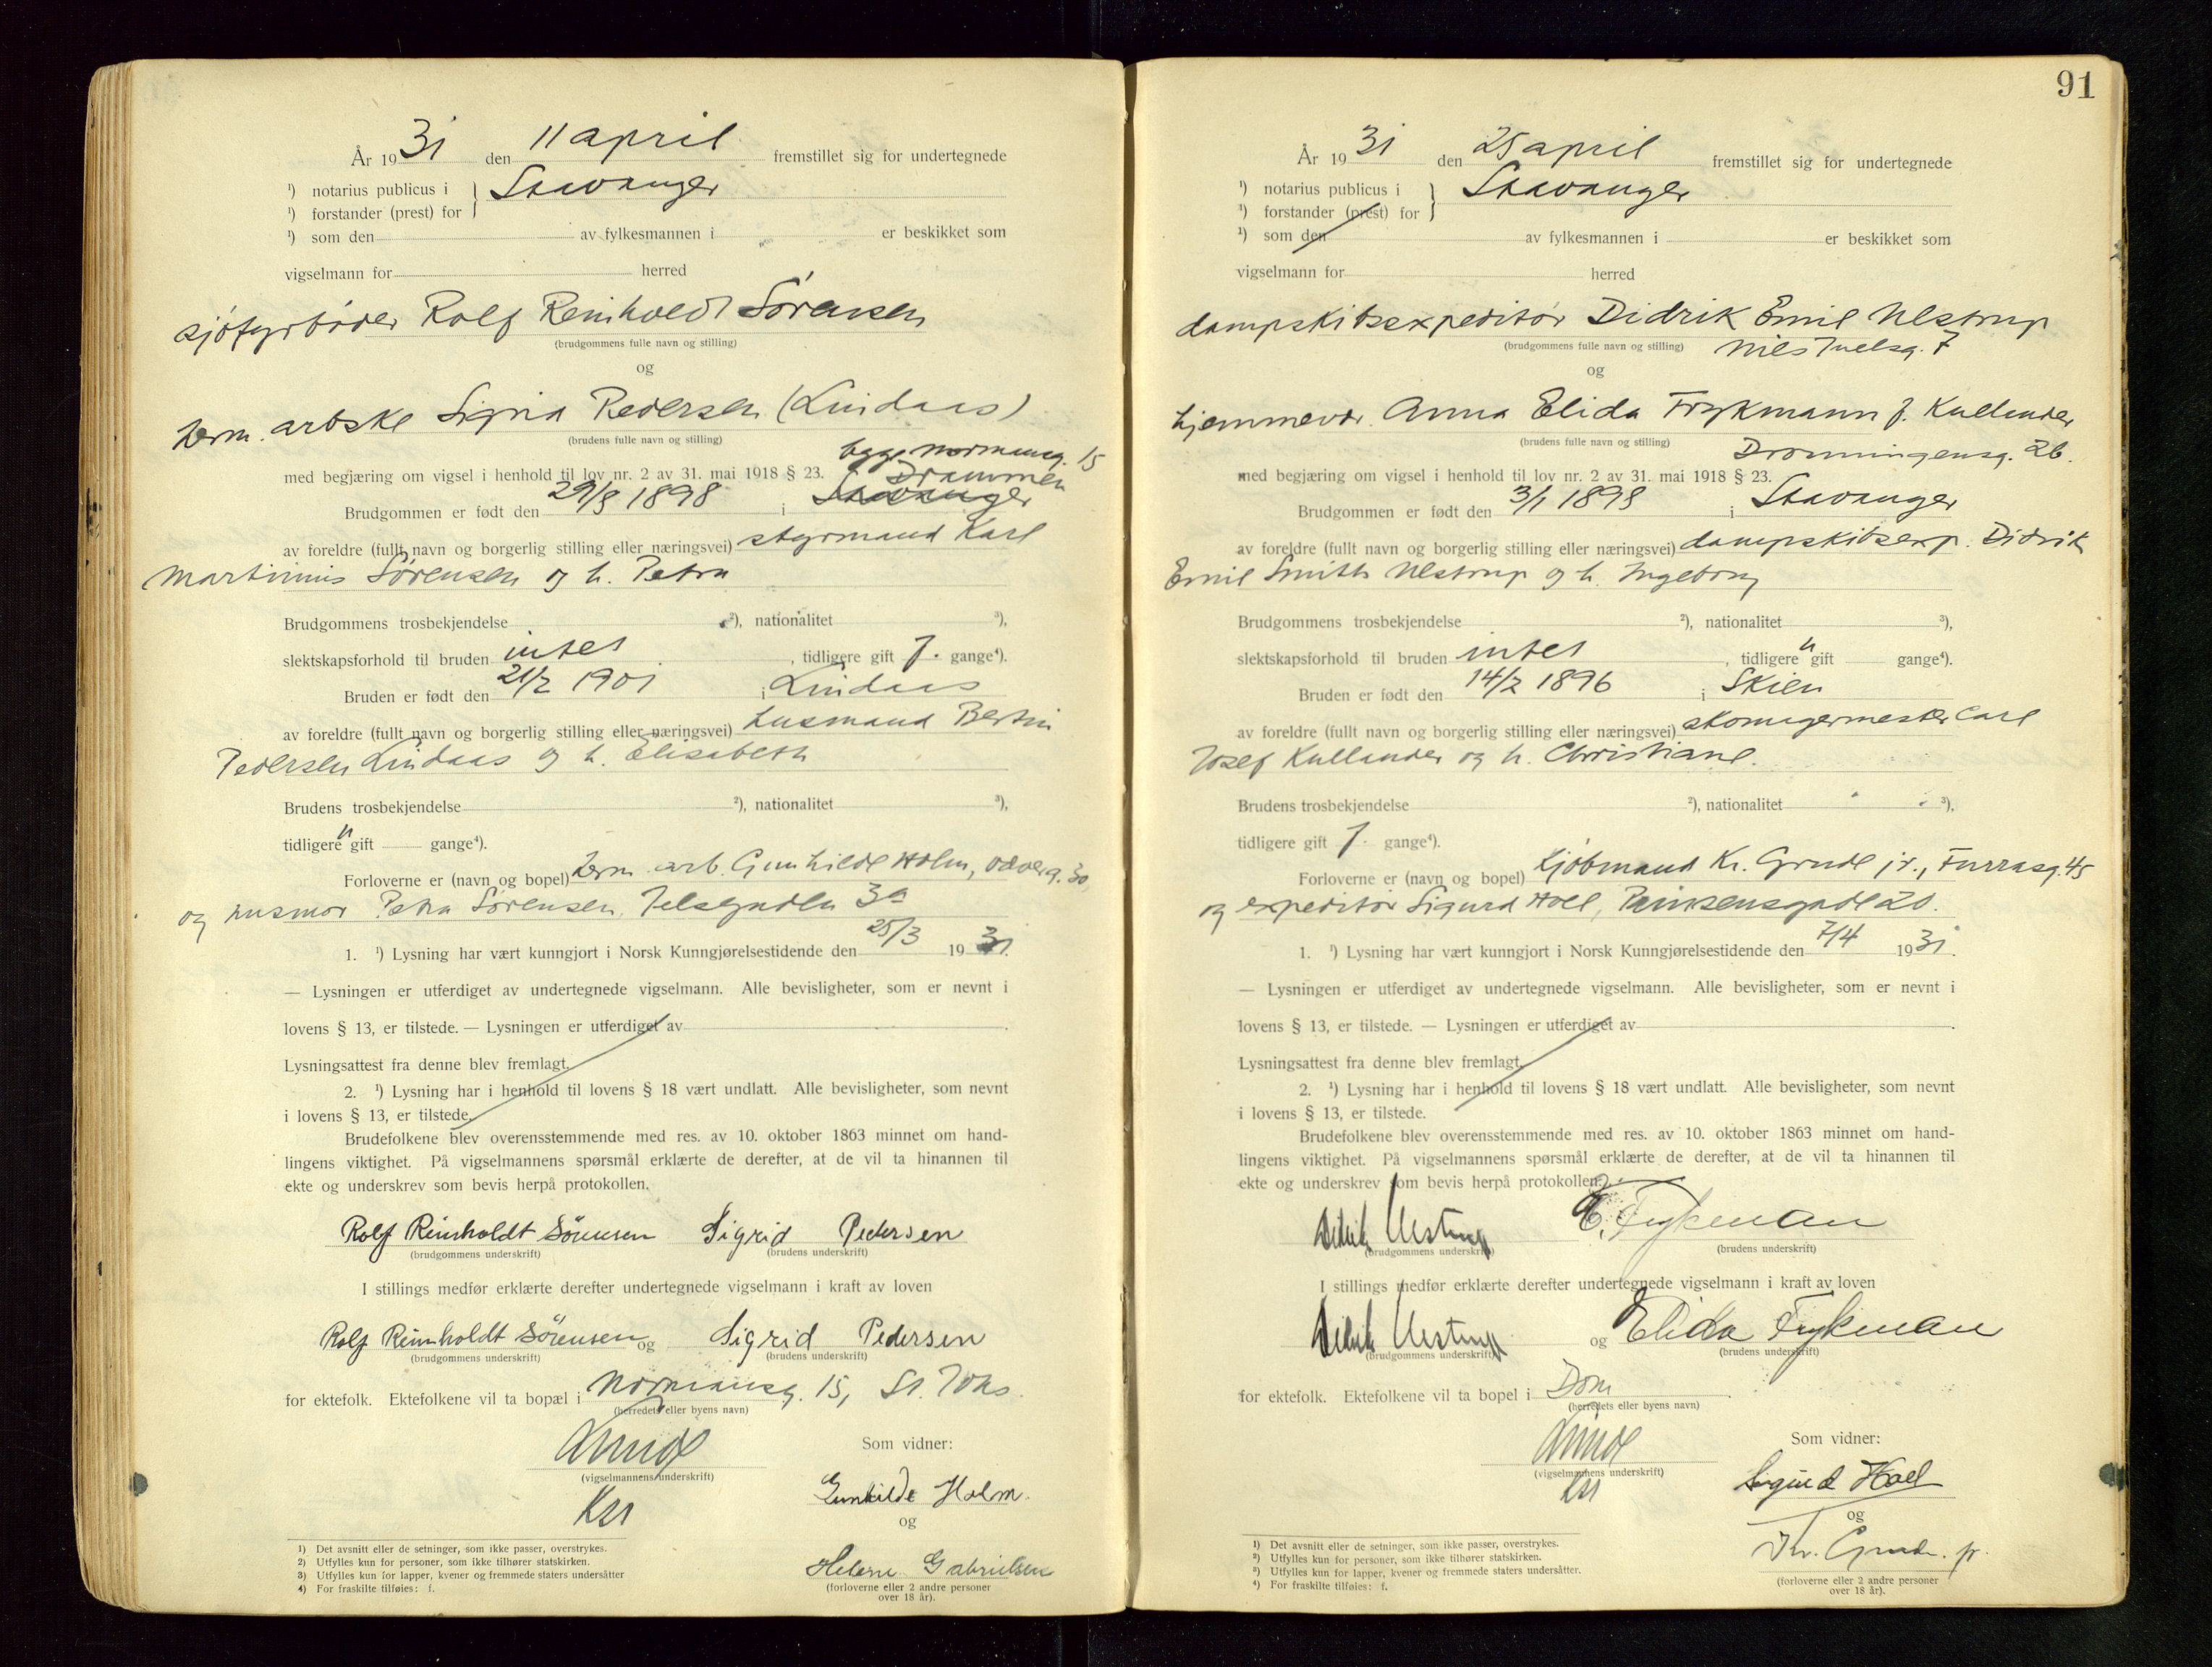 År 1931 den 11 april fremstillet sig for undertegnede
¹) notarius publicus i } Stavanger
¹) forstander (prest) for
¹) som den av fylkesmannen i er beskikket som
vigselmann for herred
sjøfyrbøder Rolf Reinholdt Sørensen
(brudgommens fulle navn og stilling)
og
herm. arbske Sigrid Pedersen (Lindaas)
(brudens fulle navn og stilling)
begge Normannsg. 15
med begjæring om vigsel i henhold til lov nr. 2 av 31. mai 1918 § 23. Drammen
Brudgommen er født den 29/8 1898 i Stavanger
av foreldre (fullt navn og borgerlig stilling eller næringsvei) styrmand Karl
Martinius Sørensen og h. Petra
Brudgommens trosbekjendelse ²), nationalitet ³),
slektskapsforhold til bruden intet, tidligere gift 1. gange⁴).
Bruden er født den 21/2 1901 i Lindaas
av foreldre (fullt navn og borgerlig stilling eller næringsvei) husmand Bertin
Pedersen Lindaas og h. Elisabeth
Brudens trosbekjendelse ²), nationalitet ³),
tidligere u gift gange⁴).
Forloverne er (navn og bopel) herm. arb. Gunhilde Holm, 30
og husmor Petra Sørensen, 3a
1. ¹) Lysning har vært kunngjort i Norsk Kunngjørelsestidende den 25/3 1931.
— Lysningen er utferdiget av undertegnede vigselmann. Alle bevisligheter, som er nevnt i
lovens § 13, er tilstede. — Lysningen er utferdiget av
Lysningsattest fra denne blev fremlagt.
2. ¹) Lysning har i henhold til lovens § 18 vært undlatt. Alle bevisligheter, som nevnt
i lovens § 13, er tilstede.
Brudefolkene blev overensstemmende med res. av 10. oktober 1863 minnet om hand-
lingens viktighet. På vigselmannens spørsmål erklærte de derefter, at de vil ta hinannen til
ekte og underskrev som bevis herpå protokollen.
Rolf Reinholdt Sörensen Sigrid Pedersen
(brudgommens underskrift) (brudens underskrift)
I stillings medfør erklærte derefter undertegnede vigselmann i kraft av loven
Rolf Reinholdt Sörensen og Sigrid Pedersen
(brudgommens underskrift) (brudens underskrift)
for ektefolk. Ektefolkene vil ta bopæl i Normannsg. 15, St. Johs.
(herredets eller byens navn)
Som vidner:
(vigselmannens underskrift)
Gunhilde Holm.
og
Helene Gabrielsen
(forloverne eller 2 andre personer
over 18 år).
1) Det avsnitt eller de setninger, som ikke passer, overstrykes.
2) Utfylles kun for personer, som ikke tilhører statskirken.
3) Utfylles kun for lapper, kvener og fremmede staters undersåtter
4) For fraskilte tilføies: f.
91
År 1931 den 25 april fremstillet sig for undertegnede
¹) notarius publicus i } Stavanger
¹) forstander (prest) for
¹) som den av fylkesmannen i er beskikket som
vigselmann for herred
dampskibsexpeditør Didrik Emil Ulstrup
(brudgommens fulle navn og stilling) Nils Juelsg. 7
og
hjemmevær. Anna Elida Frykmann f. Kullander
(brudens fulle navn og stilling) Dronningensg. 26.
med begjæring om vigsel i henhold til lov nr. 2 av 31. mai 1918 § 23.
Brudgommen er født den 3/1 1898 i Stavanger
av foreldre (fullt navn og borgerlig stilling eller næringsvei) dampskibsexp. Didrik
Emil Smith Ulstrup og h. Ingeborg
Brudgommens trosbekjendelse ²), nationalitet ³),
slektskapsforhold til bruden intet, tidligere u gift gange⁴).
Bruden er født den 14/2 1896 i Skien
av foreldre (fullt navn og borgerlig stilling eller næringsvei) skomagermester Carl
Josef Kullander og h. Christiane.
Brudens trosbekjendelse ²), nationalitet ³),
tidligere gift 1. gange⁴).
Forloverne er (navn og bopel) kjøbmand Kr. Grude jr., Furrasg. 45
og expeditør Sigurd Hoel, Prinsensgade 20.
1. ¹) Lysning har vært kunngjort i Norsk Kunngjørelsestidende den 7/4 1931.
— Lysningen er utferdiget av undertegnede vigselmann. Alle bevisligheter, som er nevnt i
lovens § 13, er tilstede. — Lysningen er utferdiget av
Lysningsattest fra denne blev fremlagt.
2. ¹) Lysning har i henhold til lovens § 18 vært undlatt. Alle bevisligheter, som nevnt
i lovens § 13, er tilstede.
Brudefolkene blev overensstemmende med res. av 10. oktober 1863 minnet om hand-
lingens viktighet. På vigselmannens spørsmål erklærte de derefter, at de vil ta hinannen til
ekte og underskrev som bevis herpå protokollen.
Didrik Ulstrup E. Frykman
(brudgommens underskrift) (brudens underskrift)
I stillings medfør erklærte derefter undertegnede vigselmann i kraft av loven
Didrik Ulstrup og Elida Frykman
(brudgommens underskrift) (brudens underskrift)
for ektefolk. Ektefolkene vil ta bopel i Dom
(herredets eller byens navn)
Som vidner:
(vigselmannens underskrift)
Sigurd Hoel
og
Kr. Grude jr.
(forloverne eller 2 andre personer
over 18 år).
1) Det avsnitt eller de setninger, som ikke passer, overstrykes.
²) Utfylles kun for personer, som ikke tilhører statskirken.
³) Utfylles kun for lapper, kvener og fremmede staters undersåtter.
⁴) For fraskilte tilføies: f.